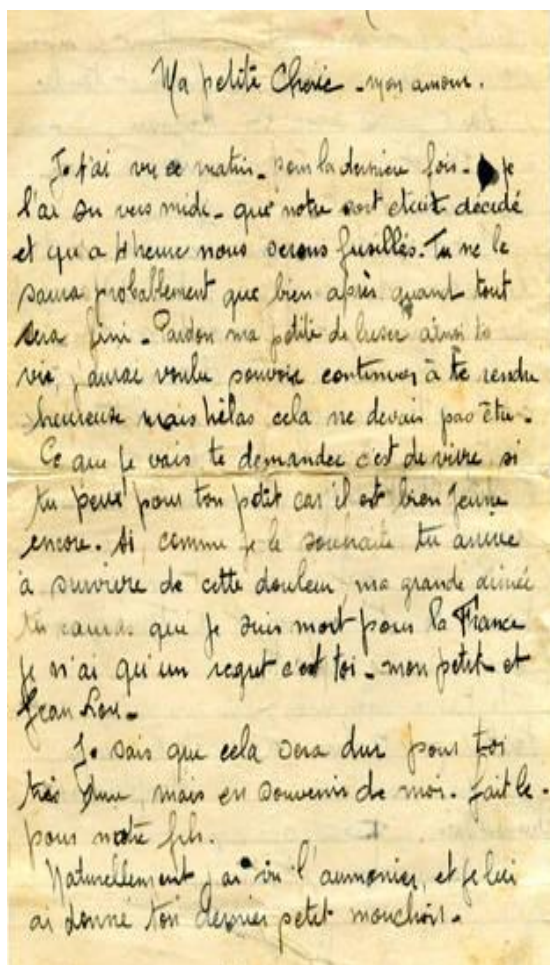 Ma petite Cherie - mon amour.
Je t'ai vu ce matin - pour la derniere fois - je
l'ai su vers midi - que notre sort etait décidé
et qu'a 4 heure nous serons fusillés. Tu ne le
saura probablement que bien après quant tout
sera fini - Pardon ma petite de briser ainsi ta
vie, j'aurai voulu pouvoir continuer à te rendre
heureuse mais hélas cela ne devais pas être -
Ce que je vais te demander c'est de vivre, si
tu peux pour ton petit car il est bien jeune
encore. Si comme je le souhaite tu arrive
à survivre de cette douleur, ma grande aimée
tu sauras que je suis mort pour la France
je n'ai qu'un regret c'est toi - mon petit et
Jean Lou -
Je sais que cela sera dur pour toi
très dur, mais en souvenir de moi - fait le -
pour notre fils.
Naturellement j'ai vu l'aumonier, et je lui
ai donné ton dernier petit mouchoir -